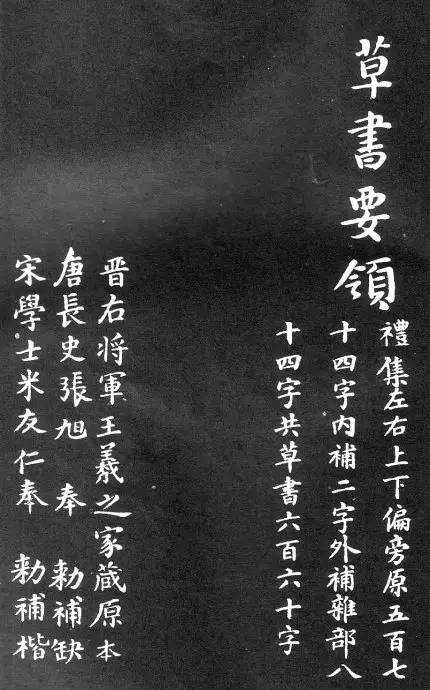 草書要領
禮集左右上下偏旁原五百七
十四字内補二字外補雜部八
十四字共草書六百六十字
晋右将軍王羲之家蔵原本
唐長史張旭奉 勅補缺
宋學士米友仁奉 勅補楷